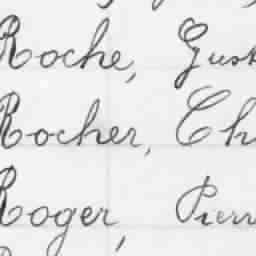 Roche, Gust
Rocher, Ch
Roger, Pierr